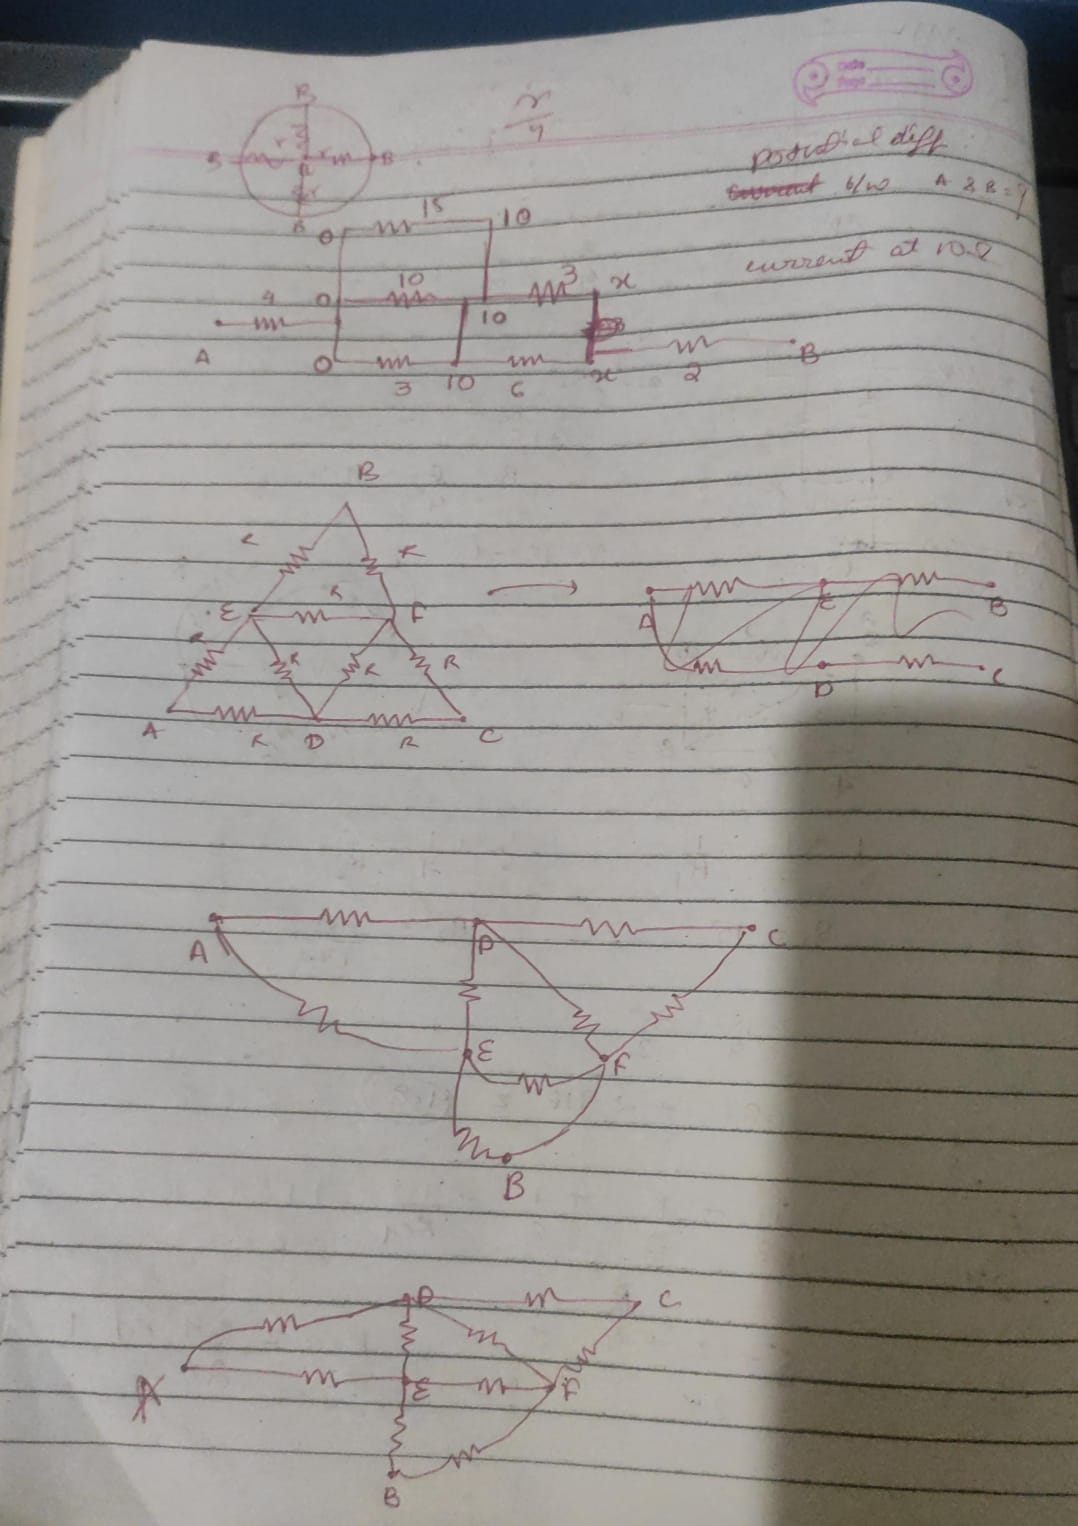 Date
Page
B
B r r B
r
B
r/4
potential diff
b/w A & B = 9
current at 10Ω
15
0 10
10 3 x
4 0 10
A
0 3 10 6 x 2 B
B
R R
R
E F
R R R R
A R D R C
A E B
D C
A D C
E F
B
D C
A E F
B